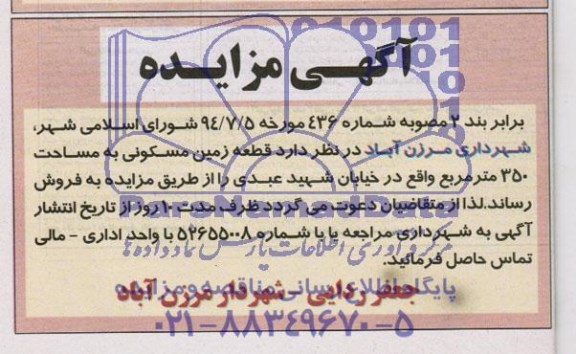 آگهـی مزایـده
برابر بند ۲ مصوبه شماره ۴۳۶ مورخه ۹۴/۷/۵ شورای اسلامی شهر،
شهرداری مرزن آباد در نظر دارد قطعه زمین مسکونی به مساحت
۳۵۰ مترمربع واقع در خیابان شهید عبدی را از طریق مزایده به فروش
رساند.لذا از متقاضیان دعوت می گردد ظرف مدت ۱۰ روز از تاریخ انتشار
آگهی به شهرداری مراجعه یا با شماره ۵۲۶۵۵۰۰۸ با واحد اداری - مالی
تماس حاصل فرمائید.
جعفر ردایی - شهردار مرزن آباد
ParsNamadData
مرکز فرآوری اطلاعات پارس نماد داده ها
پایگاه اطلاع رسانی مناقصه و مزایده
۰۲۱-۸۸۳۴۹۶۷۰-۵